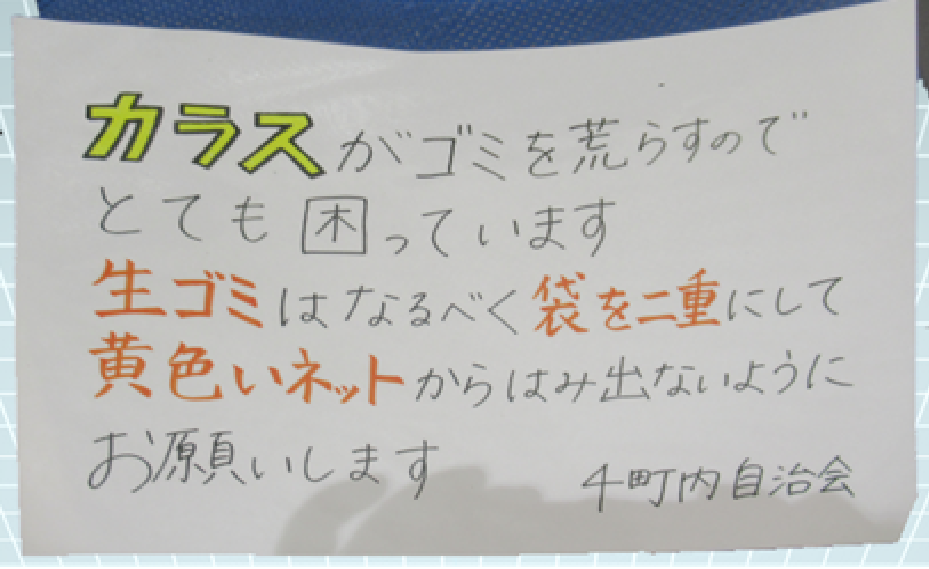 カラスがゴミを荒らすので
とても困っています
生ゴミはなるべく袋を二重にして
黄色いネットからはみ出ないように
お願いします
4町内自治会